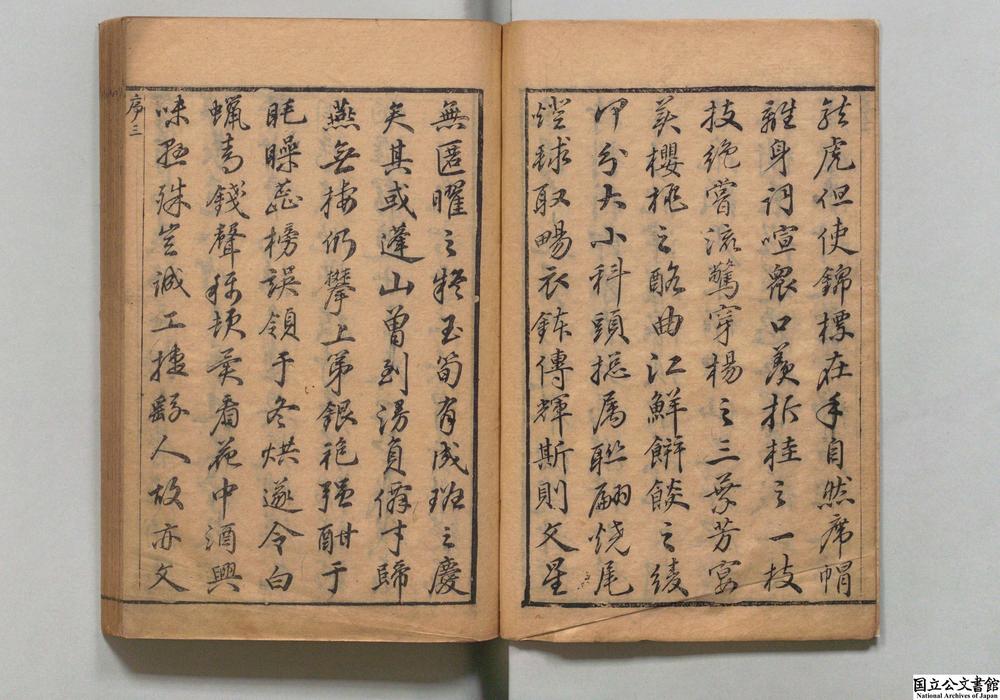 虎但使錦標在手自然席帽
離身詞喧眾口羨折桂之一枝
技絕當流驚穿楊之三葉芳宴
羨櫻桃之酪曲江鮮餅餤之綾
甲分大小科頭總属聯翩燒尾
燈毬馭暘衣鉢傳輝斯則文星
無匿曜之玉筍有成班之慶
矣其或蓬山曾到湯負僻才歸
燕無棲仍攀上第銀袍強酣于
眊矂蕊榜誤領于冬烘遂令白
蠟青錢聲看花中酒興
味懸殊豈誠工拙繇人故亦文
序三
国立公文書館
National Archives of Japan